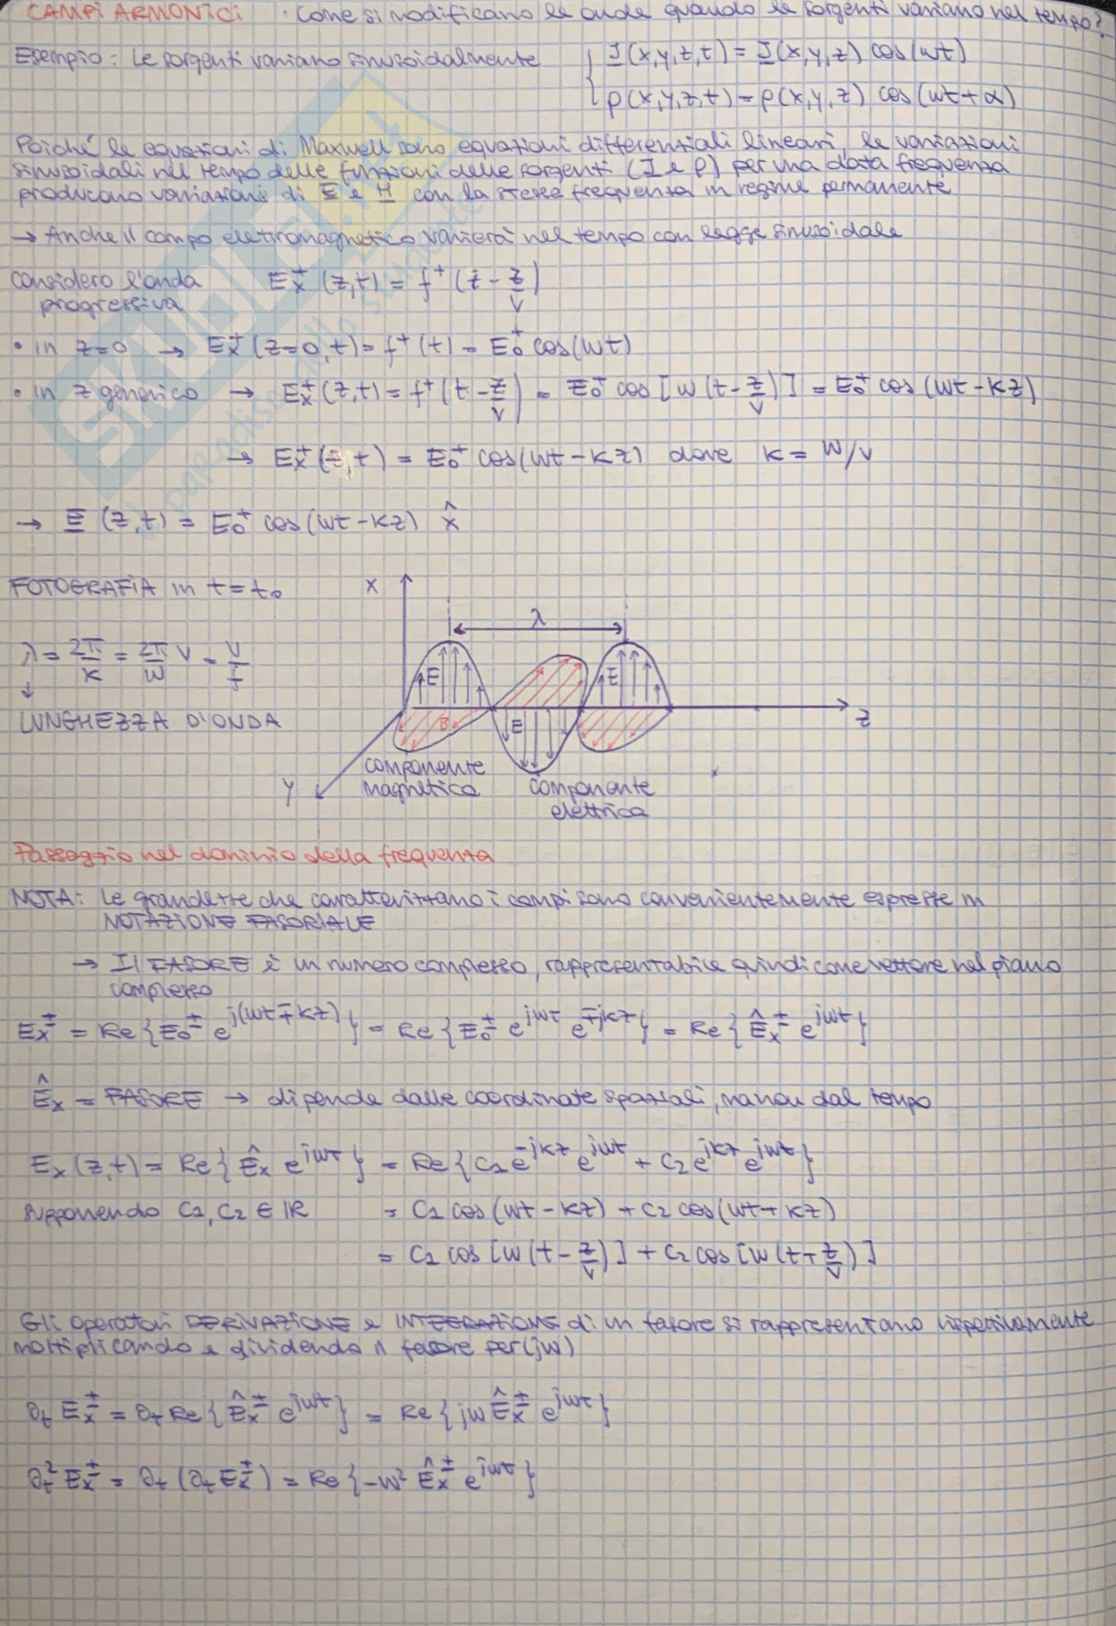 CAMPI ARMONICI · Come si modificano le onde quando le sorgenti variano nel tempo?
Esempio: Le sorgenti variano sinusoidalmente { J(x,y,z,t) = J(x,y,z) cos(wt)
ρ(x,y,z,t) = ρ(x,y,z) cos(wt+α)
Poiché le equazioni di Maxwell sono equazioni differenziali lineari, le variazioni
sinusoidali nel tempo delle funzioni delle sorgenti (J e ρ) per una data frequenza
producono variazioni di E e H con la stessa frequenza in regime permanente
→ Anche il campo elettromagnetico varierà nel tempo con legge sinusoidale
Considero l'onda progressiva Ex⁺(z,t) = f⁺(t - z/v)
• in z=0 → Ex⁺(z=0,t) = f⁺(t) = E0⁺ cos(wt)
• in z generico → Ex⁺(z,t) = f⁺(t - z/v) = E0⁺ cos[w(t - z/v)] = E0⁺ cos(wt - kz)
→ Ex⁺(z,t) = E0⁺ cos(wt - kz) dove k = w/v
→ E(z,t) = E0⁺ cos(wt - kz) x̂
FOTOGRAFIA in t=t0
x
λ
λ = 2π/k = 2π/w v = v/f
E
E
↓
LUNGHEZZA D'ONDA
B
E
z
y
componente
magnetica
componente
elettrica
Passaggio nel dominio della frequenza
NOTA: Le grandezze che caratterizzano i campi sono convenientemente espresse in
NOTAZIONE FASORIALE
→ Il FASORE è un numero complesso, rappresentabile quindi come vettore nel piano
complesso
Ex± = Re{E0± e^j(wt∓kz)} = Re{E0± e^jwt e^∓jkz} = Re{Êx± e^jwt}
Êx = FASORE → dipende dalle coordinate spaziali, ma non dal tempo
Ex(z,t) = Re{Êx e^jwt} = Re{C1 e^-jkz e^jwt + C2 e^jkz e^jwt}
supponendo C1, C2 ∈ ℝ = C1 cos(wt - kz) + C2 cos(wt + kz)
= C1 cos[w(t - z/v)] + C2 cos[w(t + z/v)]
Gli operatori DERIVAZIONE e INTEGRAZIONE di un fasore si rappresentano rispettivamente
moltiplicando e dividendo il fasore per (jw)
∂t Ex± = ∂t Re{Êx± e^jwt} = Re{jw Êx± e^jwt}
∂t² Ex± = ∂t(∂t Ex±) = Re{-w² Êx± e^jwt}